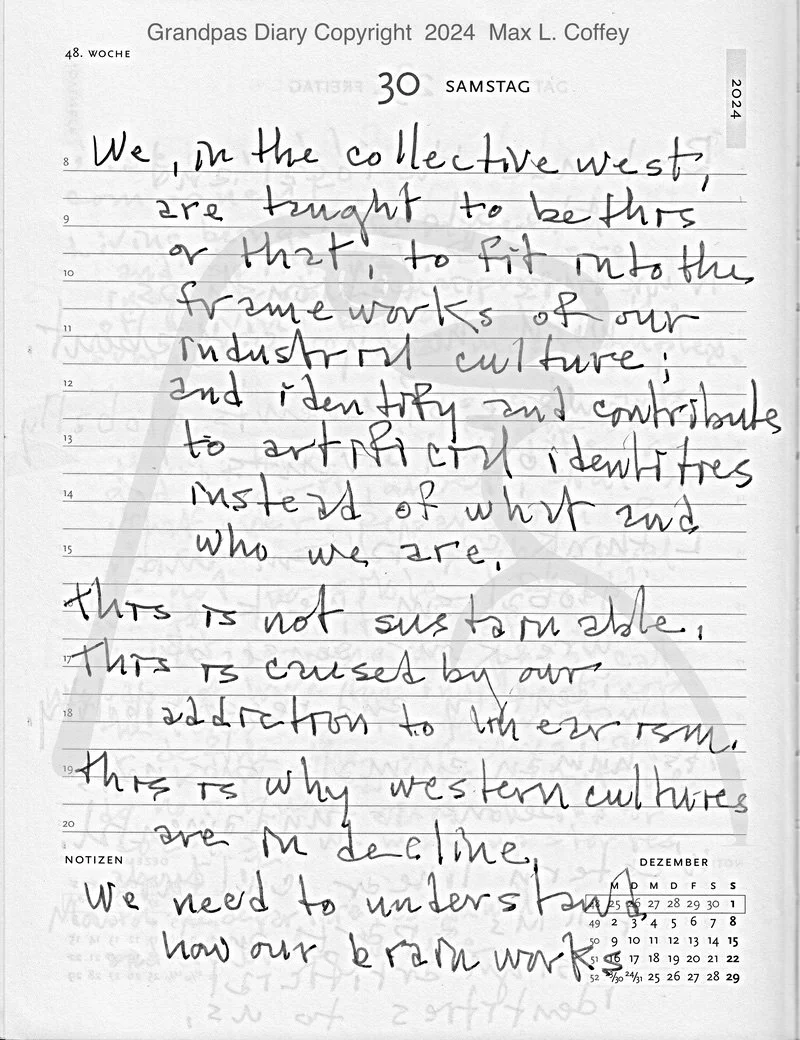 Grandpas Diary Copyright 2024 Max L. Coffey
48. WOCHE
30 SAMSTAG
2024
8 We, in the collective west,
9 are taught to be this
10 or that, to fit into the
frameworks of our
11 industrial culture;
12 and identify and contribute
13 to artificial identities
14 instead of what and
15 who we are.
this is not sustainable.
17 This is caused by our
18 addiction to linearism.
19 this is why western cultures
20 are in decline.
NOTIZEN
We need to understand
how our brain works
DEZEMBER
M D M D F S S
48 25 26 27 28 29 30 1
49 2 3 4 5 6 7 8
50 9 10 11 12 13 14 15
51 16 17 18 19 20 21 22
52 23/30 24/31 25 26 27 28 29